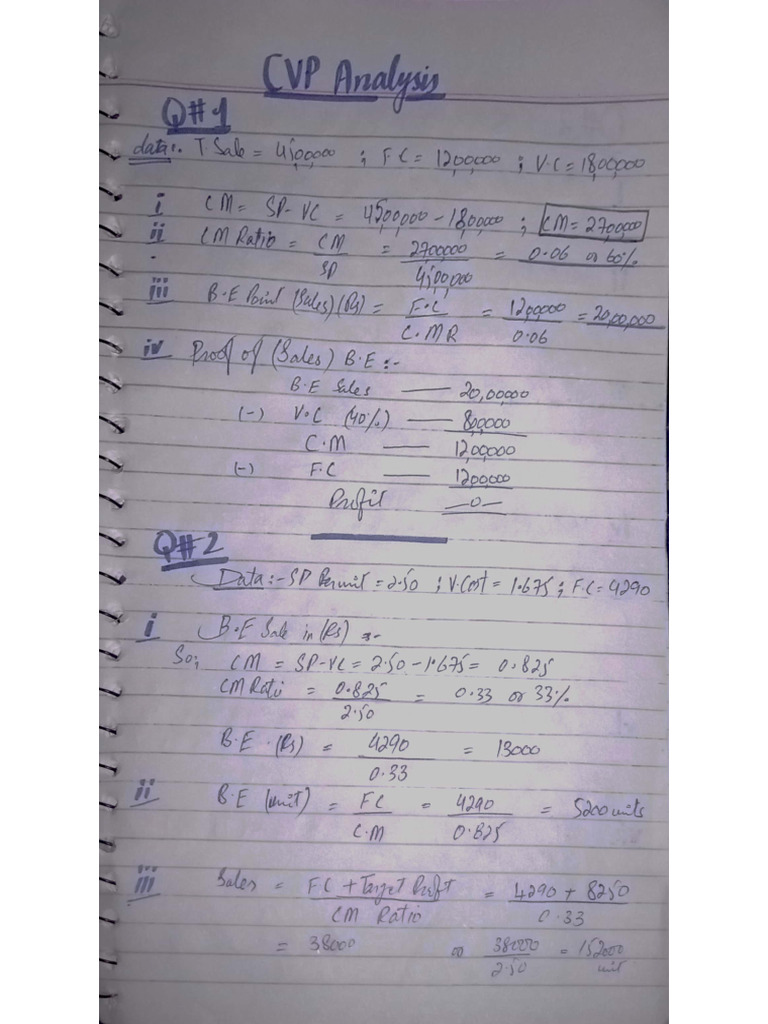 CVP Analysis
Q#1
data:. T Sale = 4,500,000 ; F.C = 12,00,000 ; V.C = 18,00,000
i CM = SP-VC = 4500,000 - 1800,000 ; CM = 2700,000
ii CM Ratio = CM / SP = 2700,000 / 4,500,000 = 0.06 or 60%
iii B.E Point (Sales) (Rs) = F.C / C.MR = 1200,000 / 0.06 = 20,00,000
iv Proof of (Sales) B.E :-
B.E Sales — 20,00,000
(-) V.C (40%) — 800,000
C.M — 1200,000
(-) F.C — 1200,000
Profit —0—
Q#2
Data:- SP Per unit = 2.50 ; V.Cost = 1.675 ; F.C = 4290
i B.E Sale in (Rs) :-
So; CM = SP-VC = 2.50 - 1.675 = 0.825
CM Rati = 0.825 / 2.50 = 0.33 or 33%
B.E. (Rs) = 4290 / 0.33 = 13000
ii B.E (unit) = FC / C.M = 4290 / 0.825 = 5200 units
iii Sales = FC + Target Profit / CM Ratio = 4290 + 8250 / 0.33
= 38000 or 38000 / 2.50 = 152000 unit